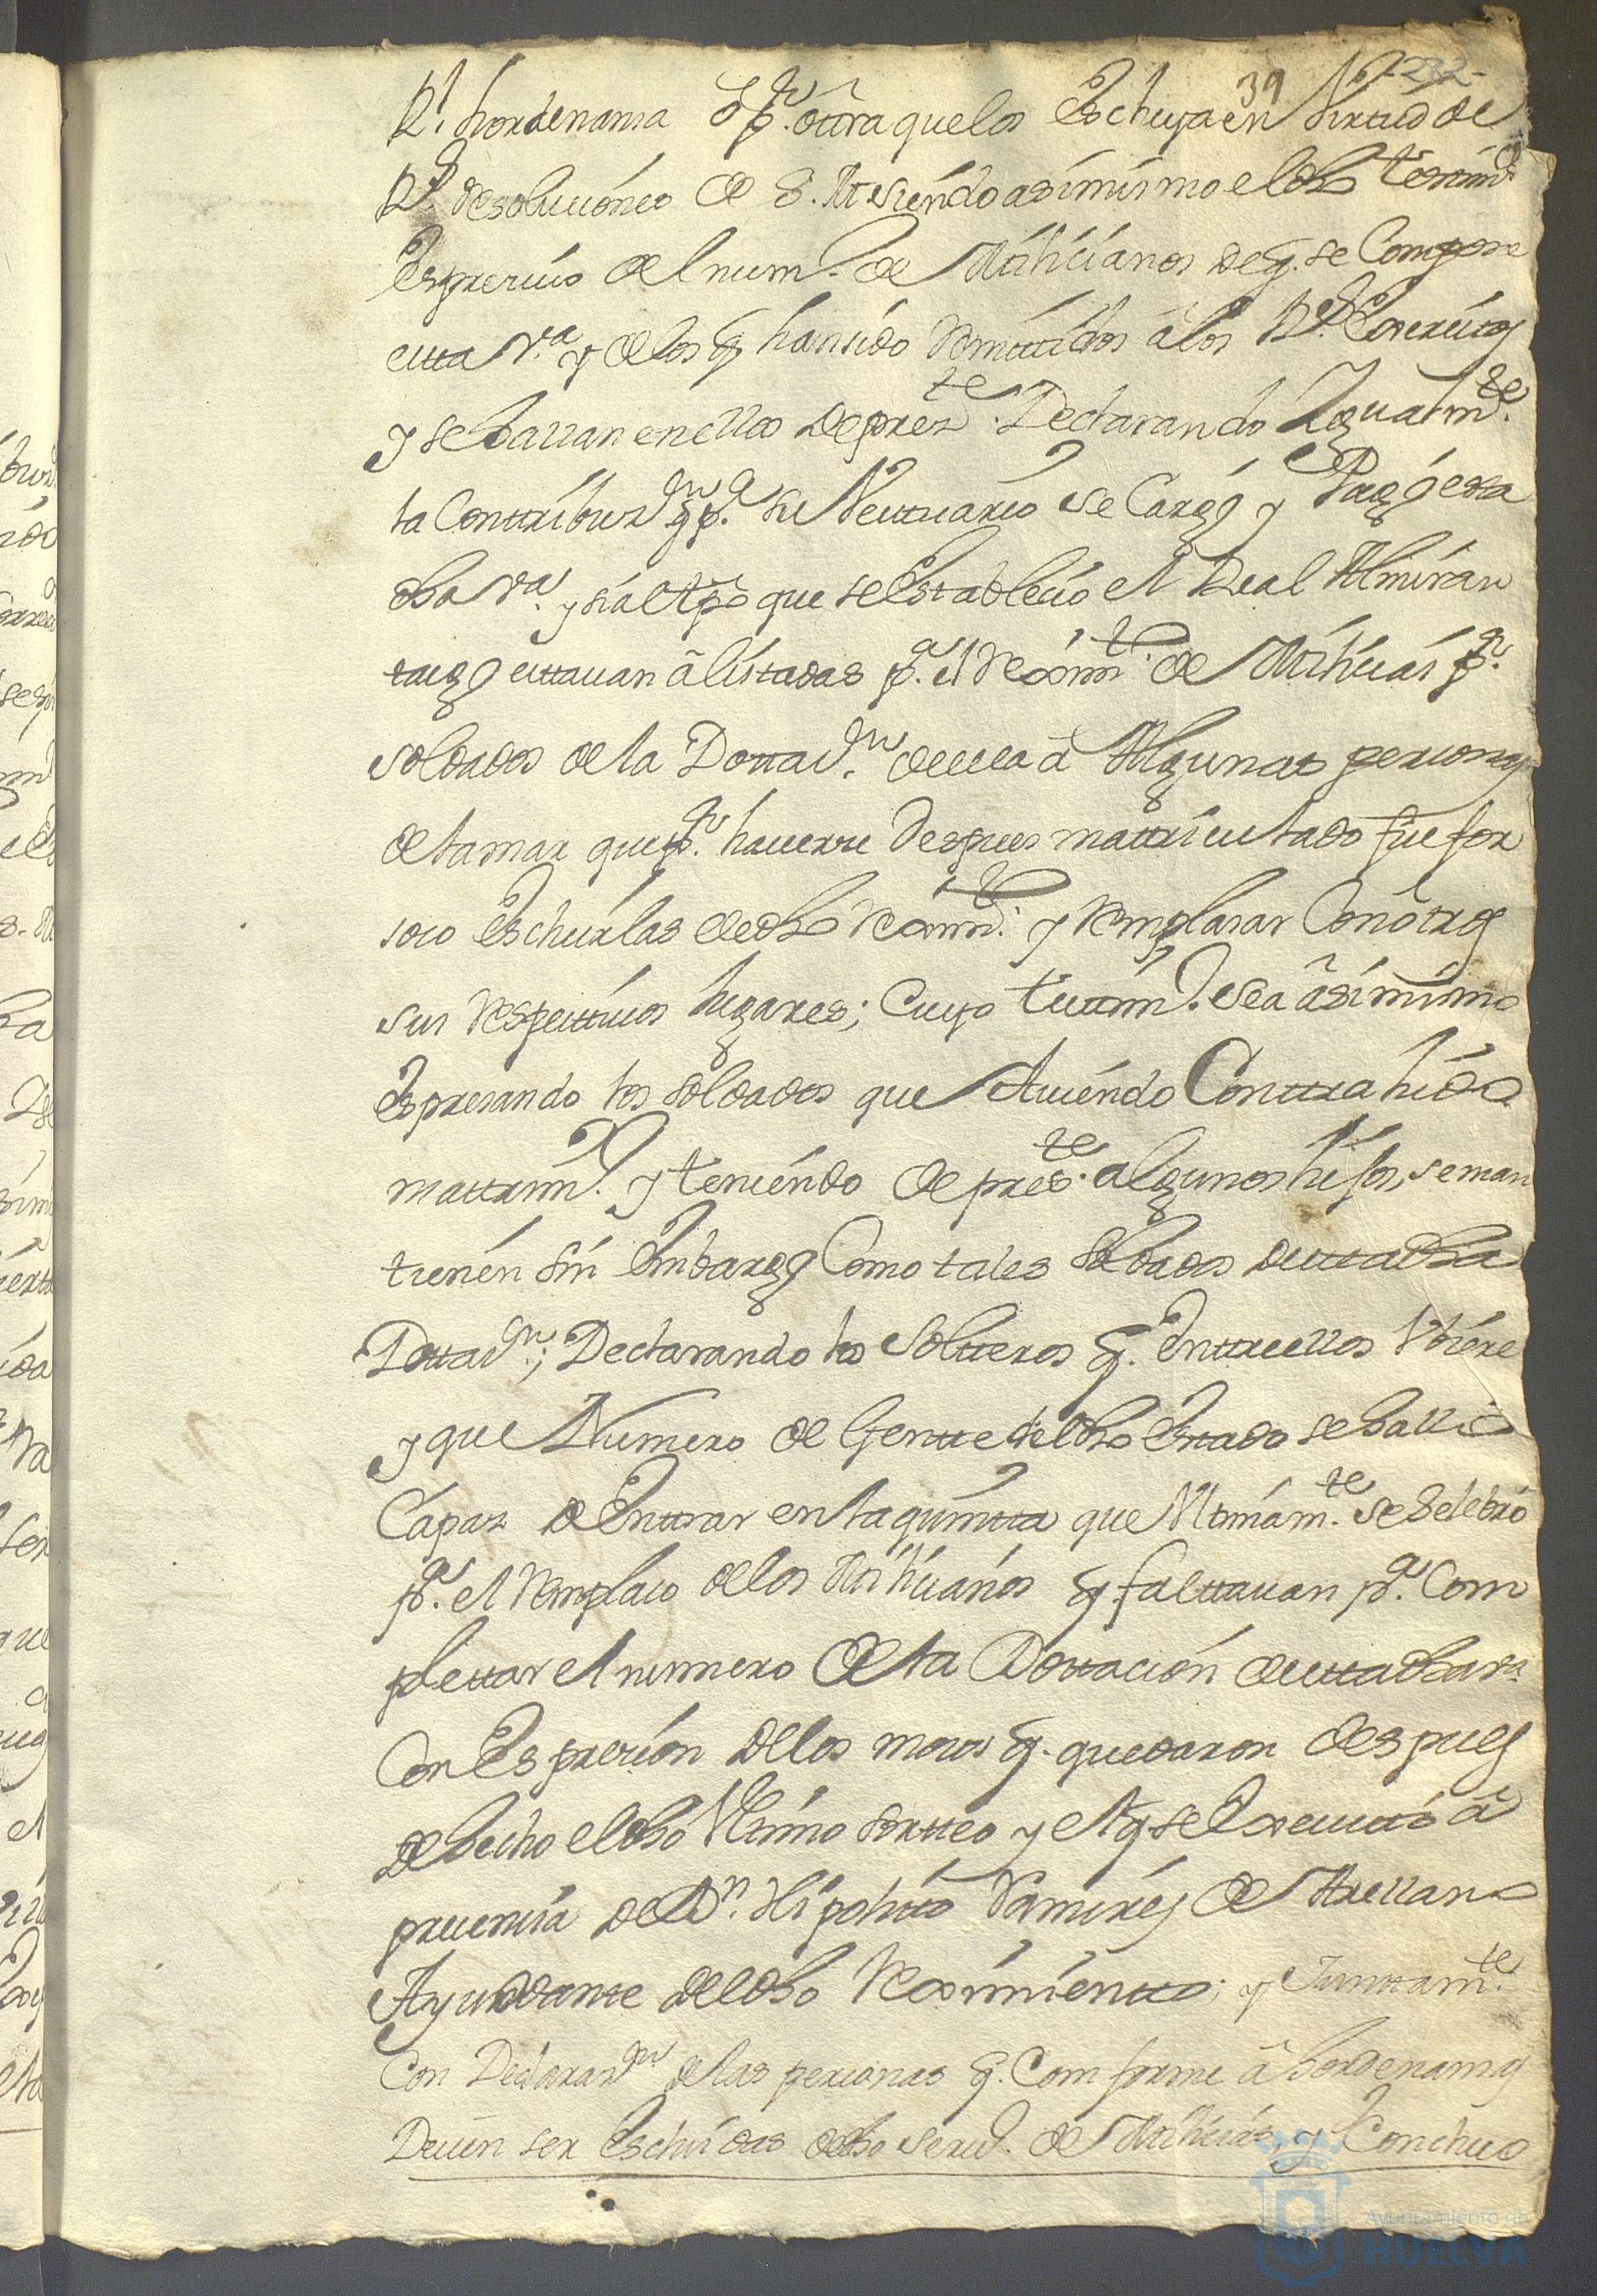 39 -232-
Rl. hordenansa o pr. otra que los Escluya en Virtud de
Rs. Resoluciones de S. M. siendo asimismo el dho testim.
Espresivo del num.º de Milicianos de q. se Compone
esta Va. y de los q han sido Remitidos â los Rs. Exercitos
y se hallan en ellos de preste. Declarando Igualmte.
la Contribuzn q pa. su Vestuario se Cargó y Pagó esta
dha va. y si al tpo que se Estableció el Real Almiran
tazgo estauan âlistadas pa. el Reximto. de Milicias pr.
soldados de la Dottasn. de esta Va Algunas personas
de la mar que pr. hauerse despues mattriculado fue for
soso Escluirlas de dho Reximto. y Remplasar Con otros
sus Respectiuos lugares; Cuyo testim.º sea âsimismo
Espresando los soldados que Auiendo Conttrahido
mattrim.º y teniendo de preste. algunos hijos, se man
tienen sin Embargo Como tales soldados de esta dha
Dottasn.; Declarando los Soltteros q. Entre ellos Vbiere
y que Numero de Gentte del dho Estado se halle
Capaz de Enttrar en la quintta que Vltimamte. se Selebró
pa. el Remplaso de los Milicianos q. falttauan pa. Com
plettar el numero de la Dottación de estta dha va.
Con Espresión de los mosos q. quedaron despues
de hecho el dho Vltimo sortteo y el q. se Executtó â
presencia de Dn. Hipolitto Ramires de Arellano
Ayudante del dho Reximientto; y Junttamte.
Con Declarasn. de las personas q. Comforme â hordenansas
Deuen ser Escluidas de dho seruº. de Milicias, y Concluso
Ayuntamiento de
HUELVA